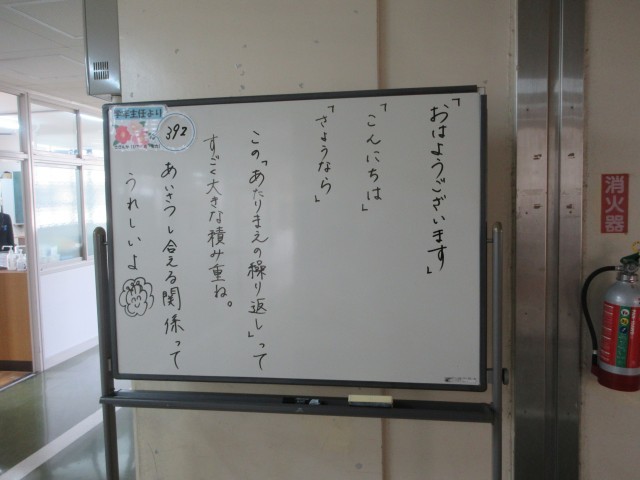 「おはようございます」
「こんにちは」
「さようなら」
この「あたりまえの繰り返し」って
すごく大きな積み重ね。
あいさつし合える関係って
うれしいよ
主任より
392
消火器